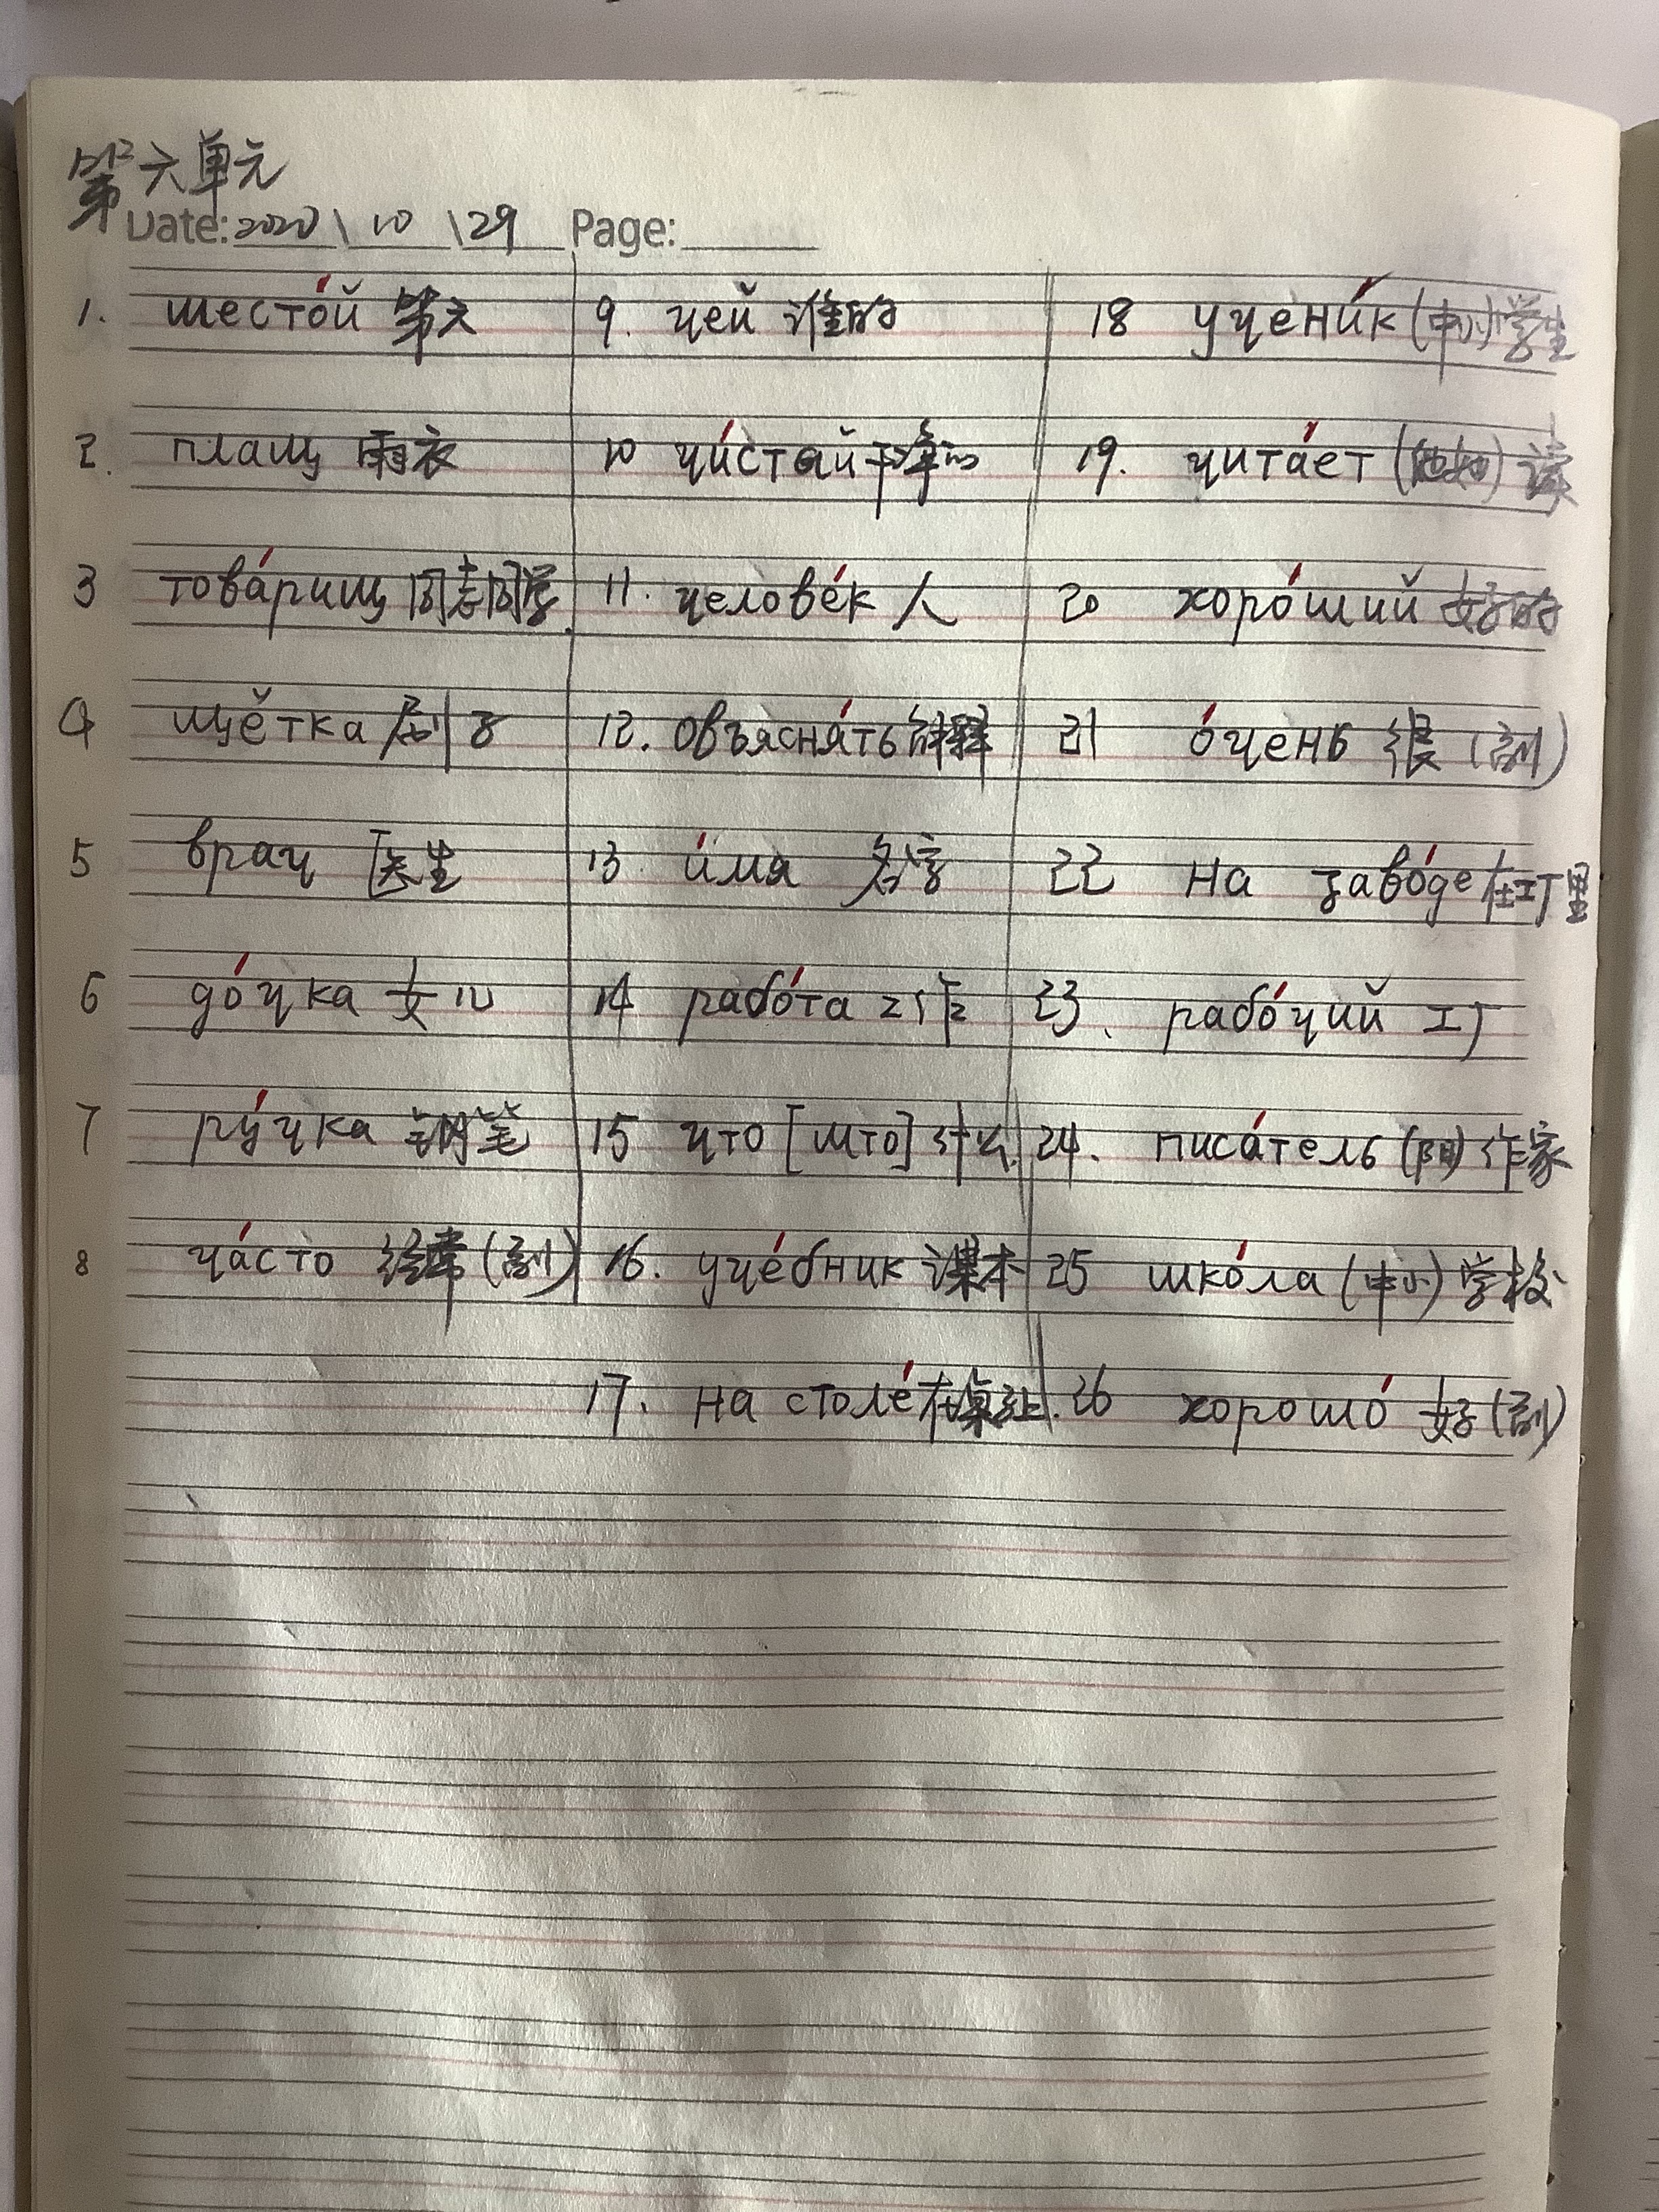 第六单元
Date: 2020\10\29 Page:
1. шесто́й 第六
2. плащ 雨衣
3 това́рищ 同志同学
4 щётка 刷子
5 врач 医生
6 до́чка 女儿
7 ру́чка 钢笔
8 ча́сто 经常(副)
9. чей 谁的
10 чи́стай 干净的
11. челове́к 人
12. овъясня́ть 解释
13. и́мя 名字
14 рабо́та 工作
15 что [што] 什么
16. уче́бник 课本
17. На столе́ 在桌子上.
18 учени́к (中小)学生
19. чита́ет (他她) 读
20 хоро́ший 好的
21 о́чень 很 (副)
22 На заво́де 在工厂里
23、 рабо́чий 工厂
24. писа́тель (阳) 作家
25 шко́ла (中小) 学校
26 хорошо́ 好(副)